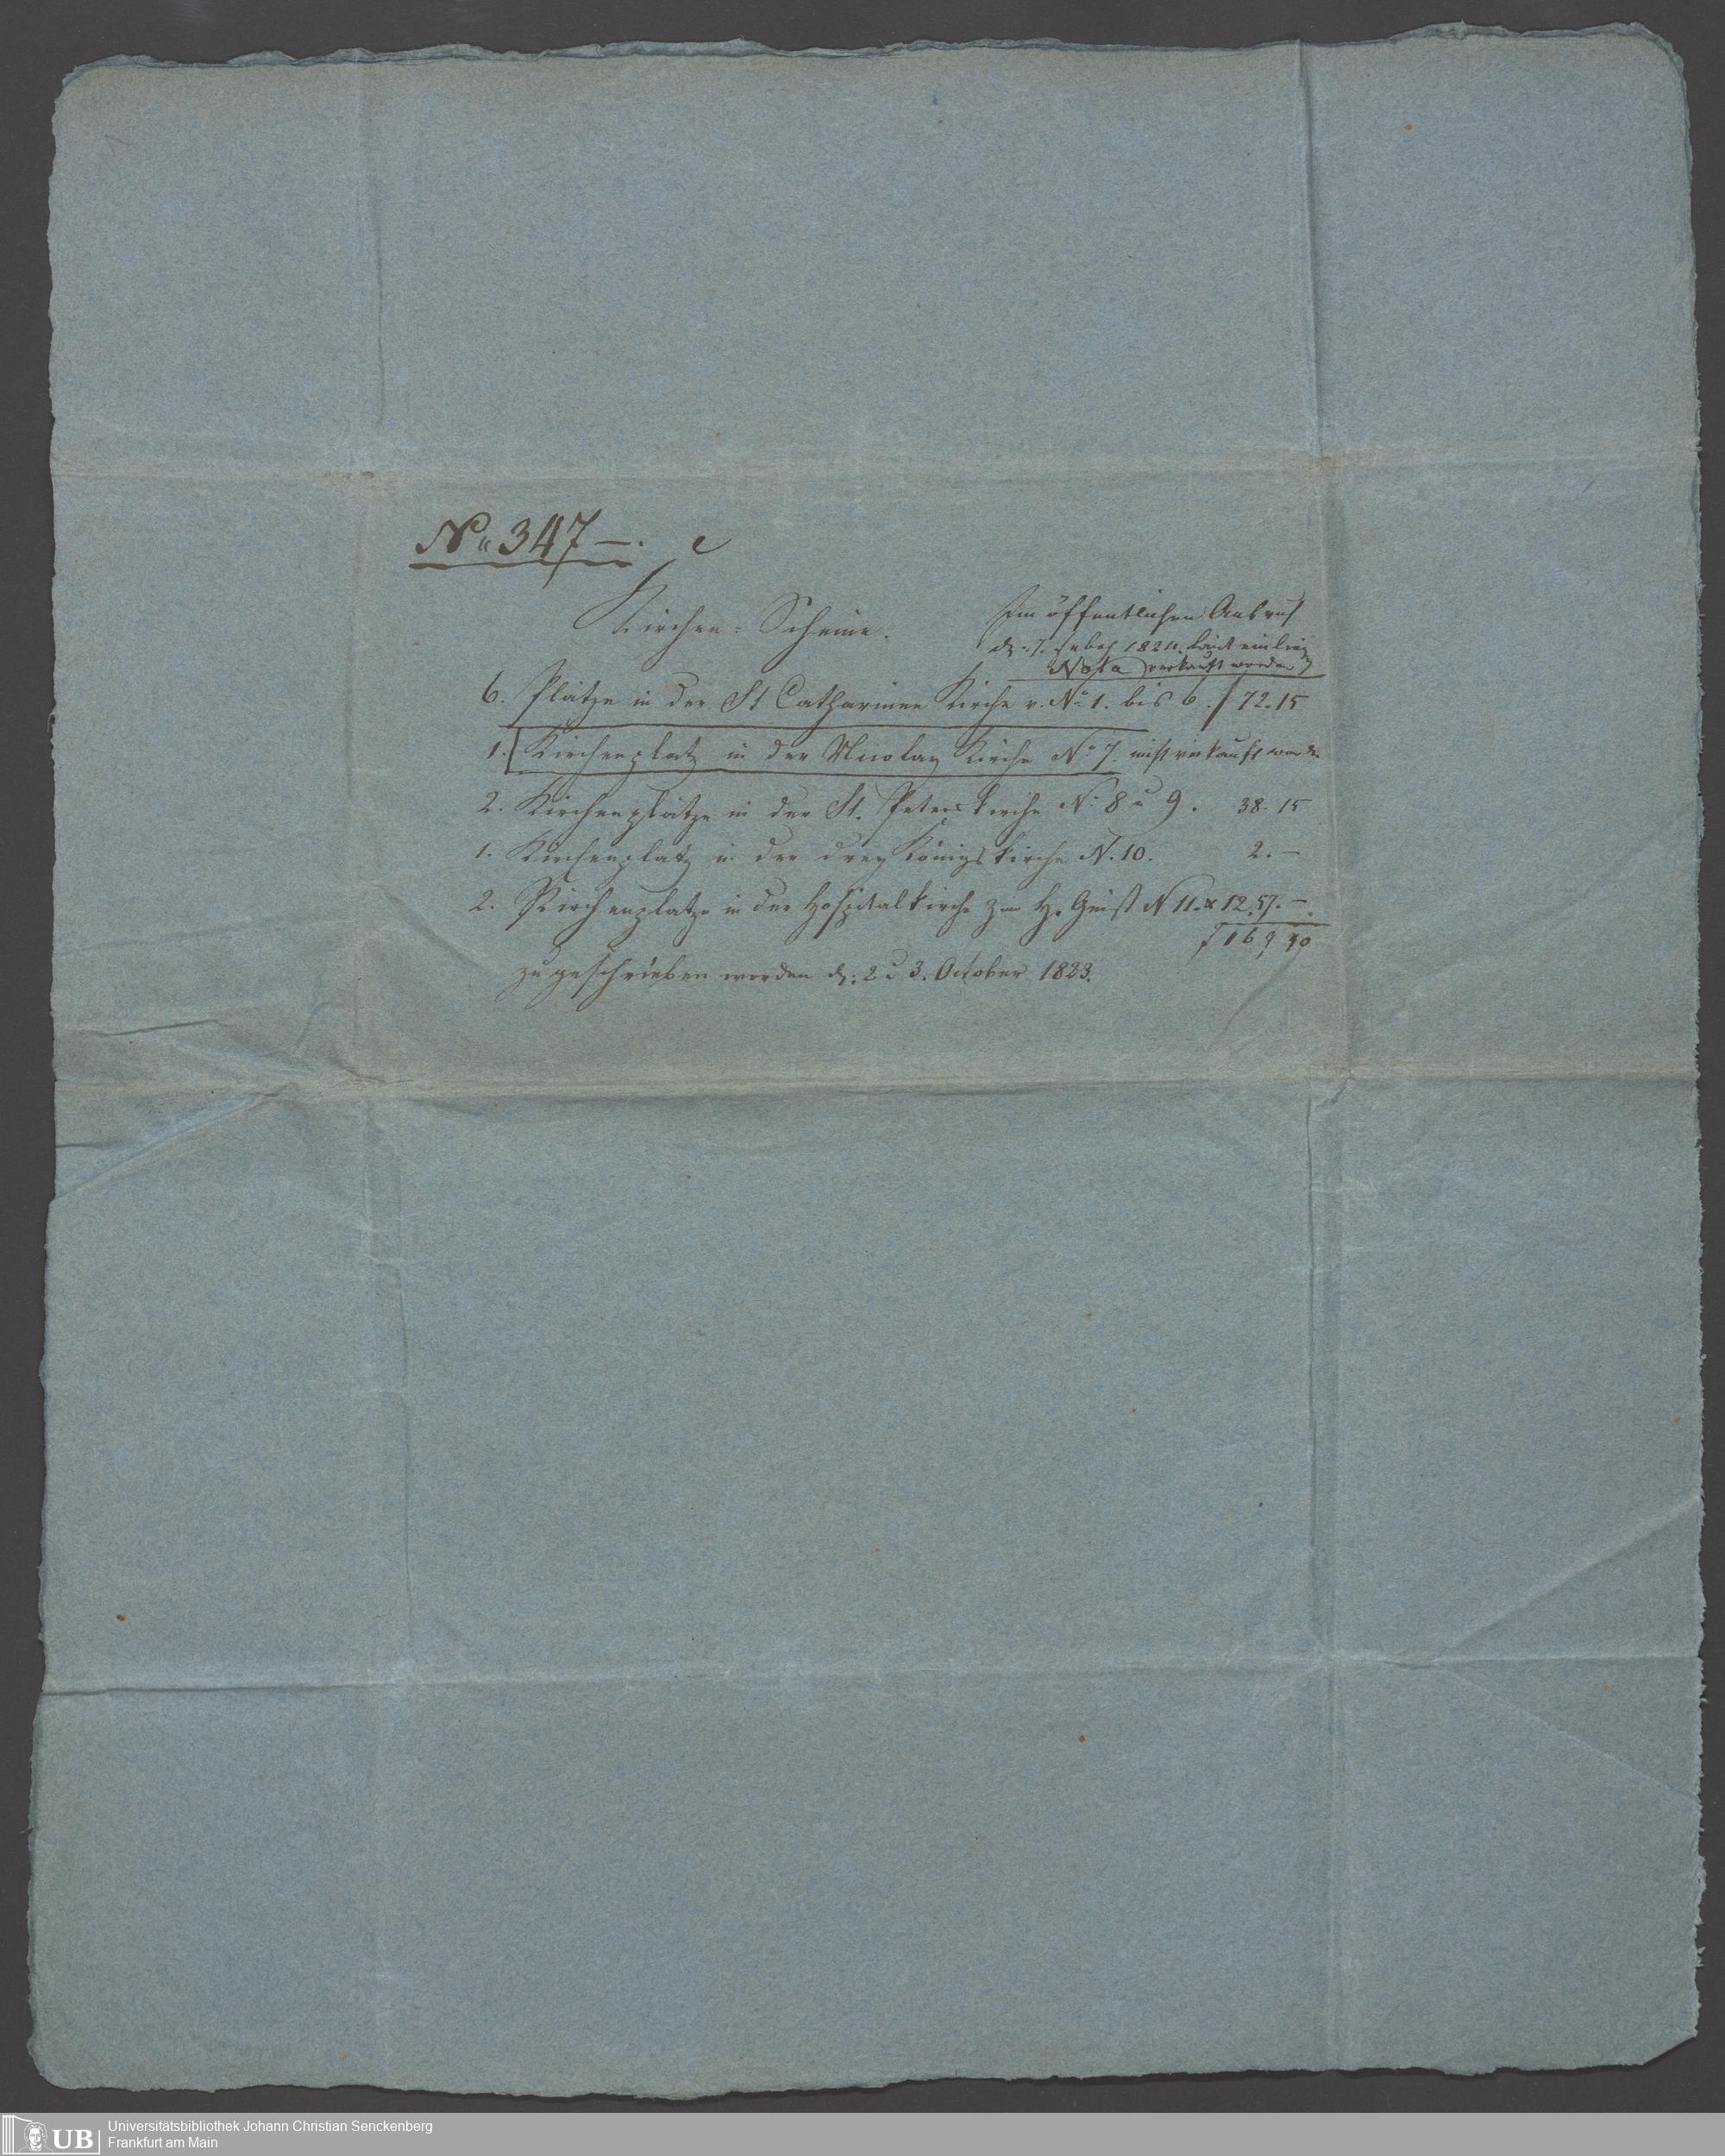 No 347 –. c
Kirchen-Scheine.
Im öffentlichen Ausruf
d. 7. 1824. laut einlieg
Nota verkauft worden
6. Plätze in der St Catharinen Kirche v. No 1. bis 6. f 72.15
1. Kirchenplatz in der Nicolay Kirche No 7. nicht verkauft worden
2. Kirchenplätze in der St. Peterskirche No 8 u 9. 38.15
1. Kirchenplatz in der drey Königskirche N. 10. 2. –
2. Kirchenplatze in der Hospitalkirche zum H. Geist N 11. & 12. 57. –
f 169 30
zugeschrieben worden d. 2 u 3. October 1823.
UB
Universitätsbibliothek Johann Christian Senckenberg
Frankfurt am Main